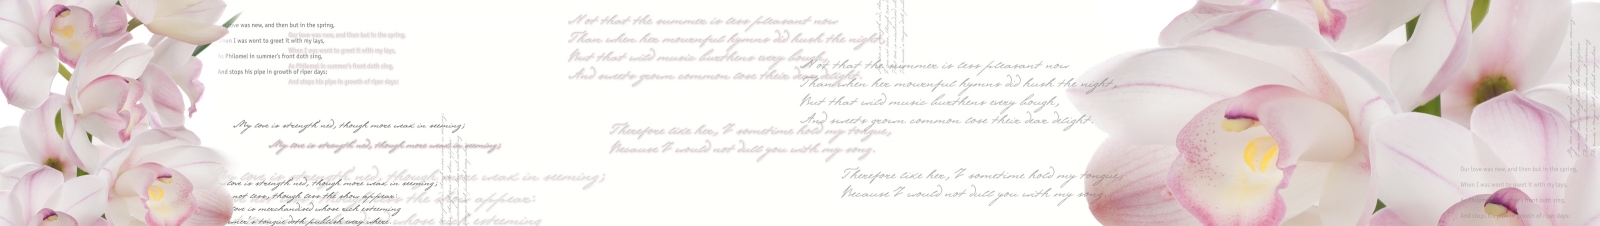 love was new, and then but in the spring,
When I was wont to greet it with my lays,
As Philomel in summer's front doth sing,
And stops his pipe in growth of riper days:
Our love was new, and then but in the spring,
When I was wont to greet it with my lays,
As Philomel in summer's front doth sing,
And stops his pipe in growth of riper days:
Not that the summer is less pleasant now
Than when her mournful hymns did hush the night,
But that wild music burthens every bough,
And sweets grown common lose their dear delight.
Not that the summer is less pleasant now
Than when her mournful hymns did hush the night,
But that wild music burthens every bough,
And sweets grown common lose their dear delight.
My love is strength'ned, though more weak in seeming;
My love is strength'ned, though more weak in seeming;
My love is strength'ned, though more weak in seeming;
love is strength'ned, though more weak in seeming;
not less, though less the show appear:
love is merchandised whose rich esteeming
owner's tongue doth publish every where.
the show appear:
whose rich esteeming
Therefore like her, I sometime hold my tongue,
Because I would not dull you with my song.
Therefore like her, I sometime hold my tongue,
Because I would not dull you with my song.
Our love was new, and then but in the spring,
When I was wont to greet it with my lays,
As Philomel in summer's front doth sing,
And stops his pipe in growth of riper days: